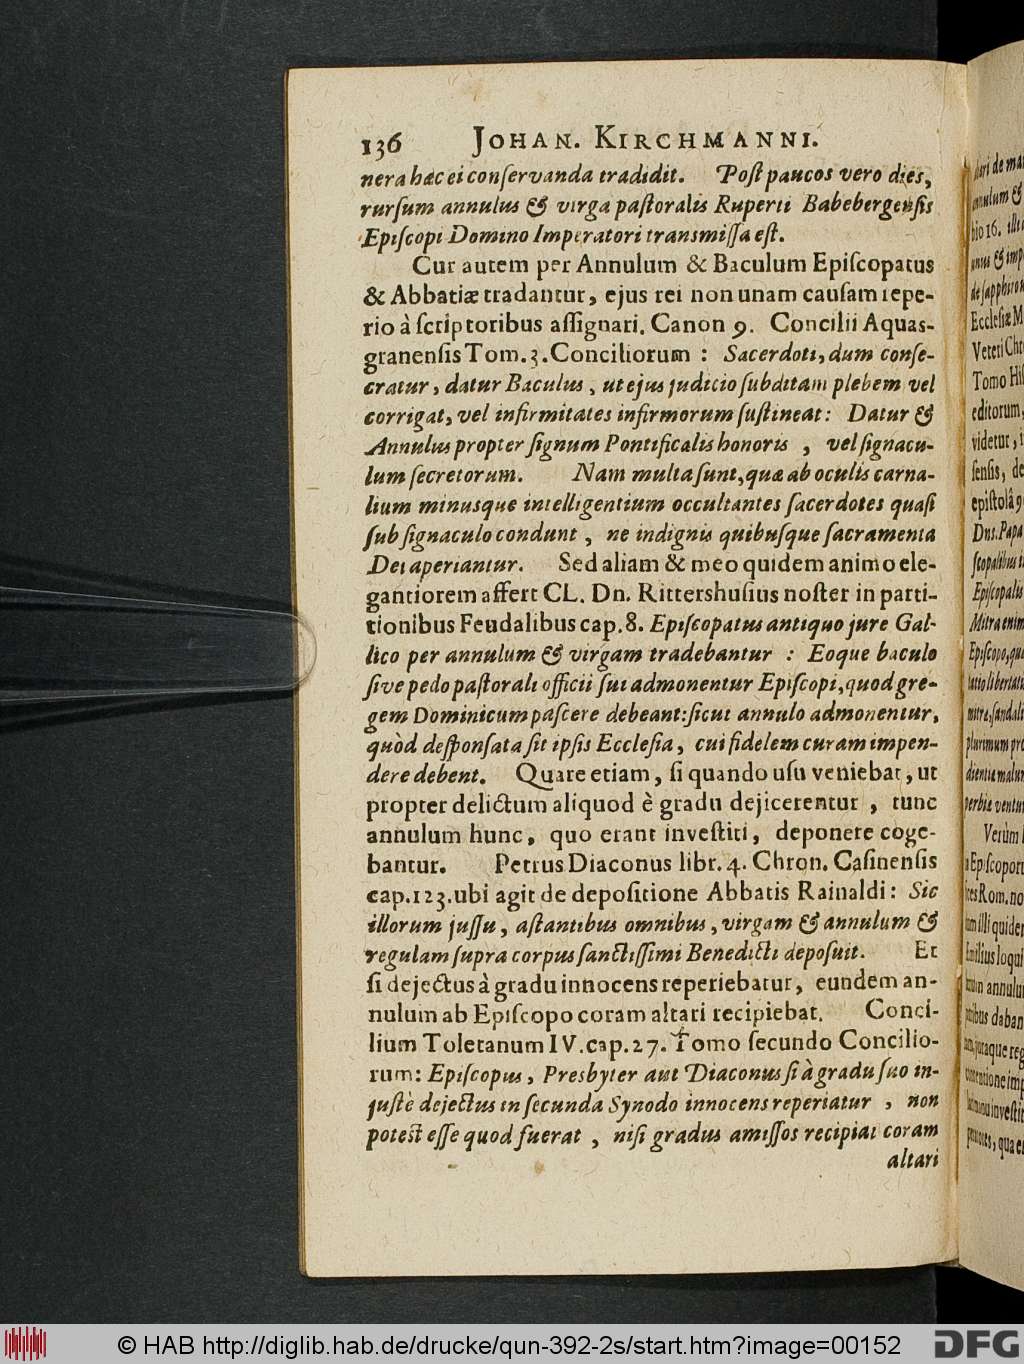 136 JOHAN. KIRCHMANNI.
nera hæc ei conſervanda tradidit. Poſt paucos vero dies,
rurſum annulus & virga paſtoralis Ruperti Babebergenſis
Epiſcopi Domino Imperatori transmiſſa eſt.
Cur autem per Annulum & Baculum Epiſcopatus
& Abbatiæ tradantur, ejus rei non unam cauſam repe-
rio à ſcriptoribus aſſignari. Canon 9. Concilii Aquas-
granenſis Tom. 3. Conciliorum : Sacerdoti, dum conſe-
cratur, datur Baculus, ut ejus judicio ſubditam plebem vel
corrigat, vel infirmitates infirmorum ſuſtineat: Datur &
Annulus propter ſignum Pontificalis honoris , vel ſignacu-
lum ſecretorum. Nam multa ſunt, quæ ab oculis carna-
lium minusque intelligentium occultantes ſacerdotes quaſi
ſub ſignaculo condunt , ne indignis quibuſque ſacramenta
Dei aperiantur. Sed aliam & meo quidem animo ele-
gantiorem affert CL. Dn. Rittershuſius noſter in parti-
tionibus Feudalibus cap. 8. Epiſcopatus antiquo jure Gal-
lico per annulum & virgam tradebantur : Eoque baculo
ſive pedo paſtorali officii ſui admonentur Epiſcopi, quod gre-
gem Dominicum paſcere debeant: ſicut annulo admonentur,
quòd deſponſata ſit ipſis Eccleſia, cui fidelem curam impen-
dere debent. Quare etiam, ſi quando uſu veniebat, ut
propter delictum aliquod è gradu dejicerentur , tunc
annulum hunc, quo erant inveſtiti, deponere coge-
bantur. Petrus Diaconus libr. 4. Chron. Caſinenſis
cap. 123. ubi agit de depoſitione Abbatis Rainaldi: Sic
illorum juſſu, aſtantibus omnibus, virgam & annulum &
regulam ſupra corpus ſanctiſſimi Benedicti depoſuit. Et
ſi dejectus à gradu innocens reperiebatur, eundem an-
nulum ab Epiſcopo coram altari recipiebat. Conci-
lium Toletanum IV. cap. 27. Tomo ſecundo Concilio-
rum: Epiſcopus, Presbyter aut Diaconus ſi à gradu ſuo in-
juſtè dejectus in ſecunda Synodo innocens reperiatur , non
poteſt eſſe quod fuerat , niſi gradus amiſſos recipiat coram
altari
© HAB http://diglib.hab.de/drucke/qun-392-2s/start.htm?image=00152
DFG